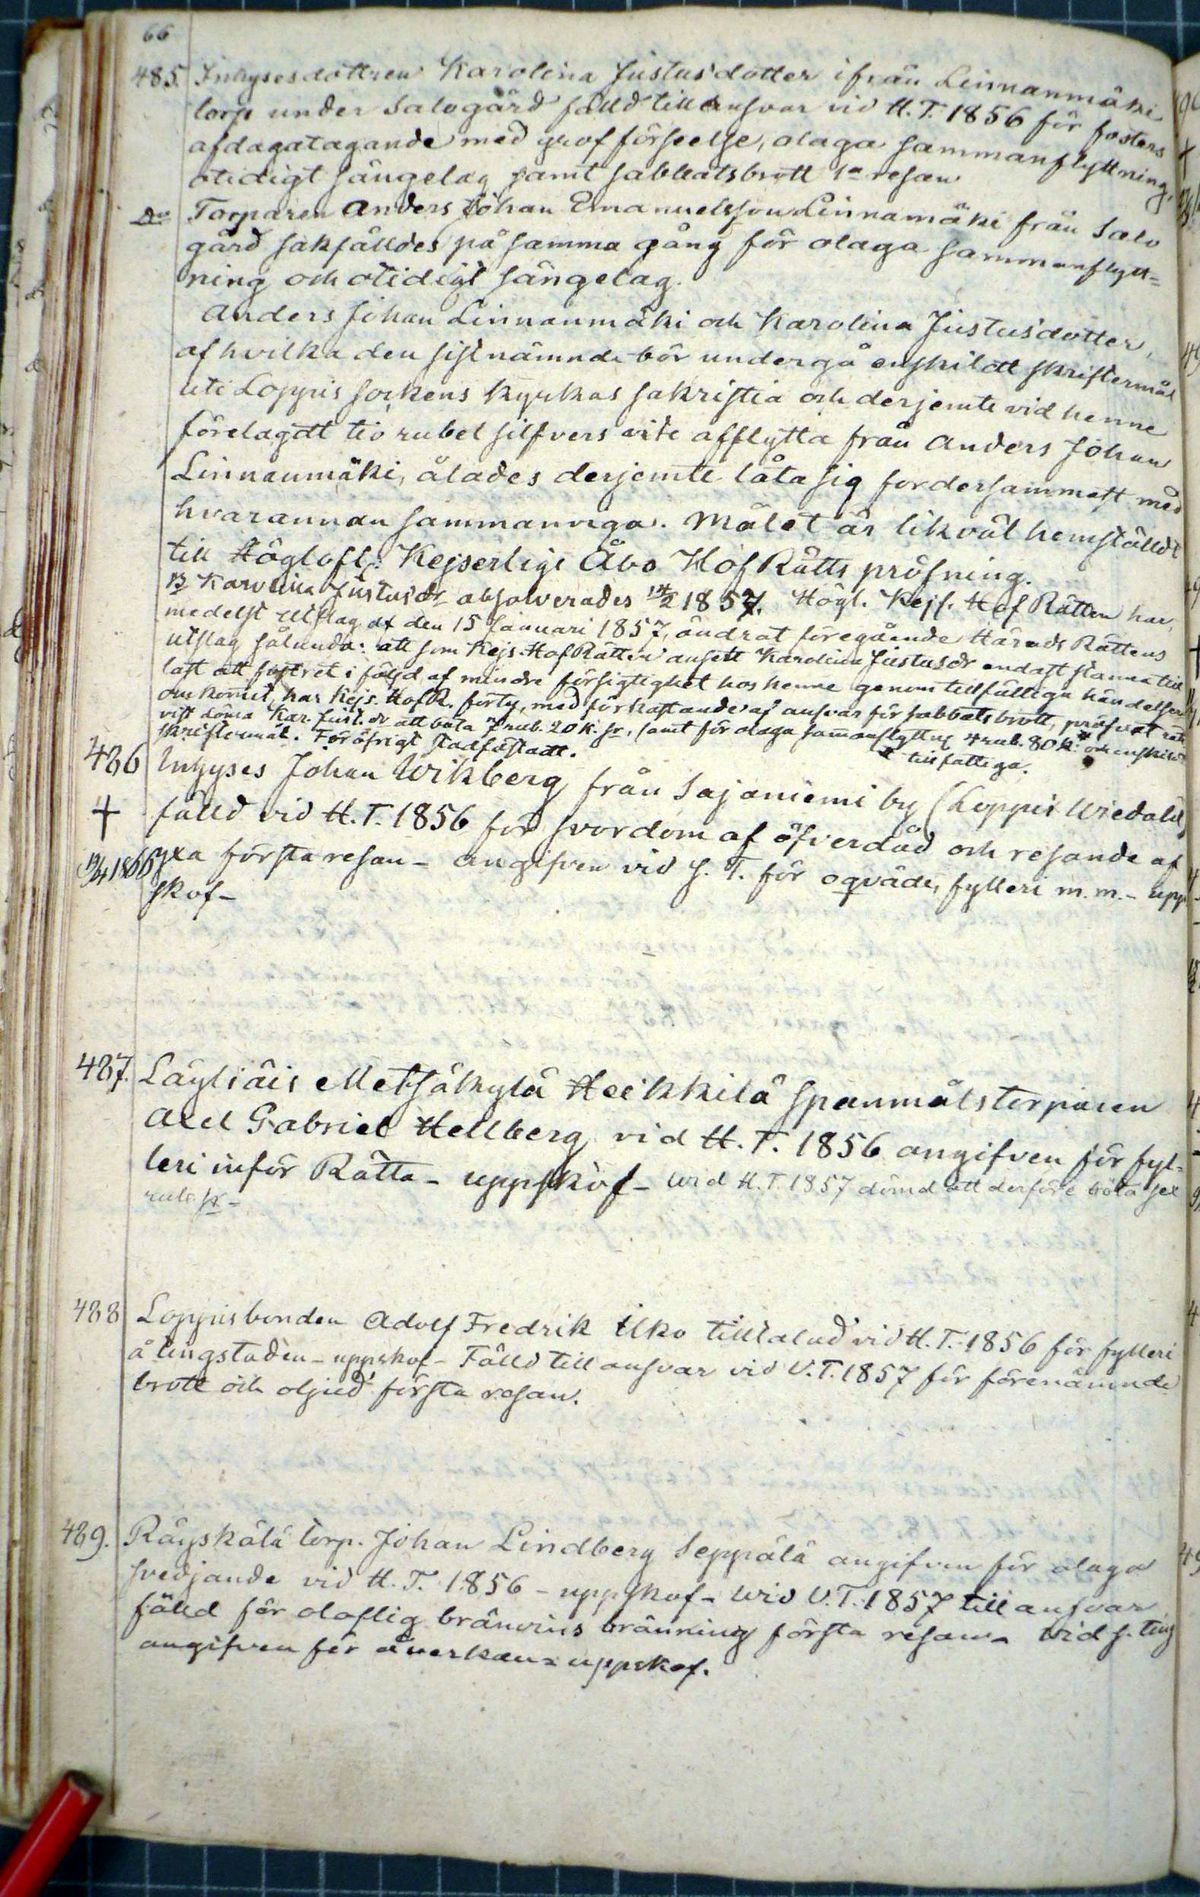 66
485. Inhysesdottren Karolina Justusdotter ifrån Linnanmäki
torp under Salogård fälld till ansvar vid H.T. 1856 för fosters
afdagatagande med grof förseelse, olaga sammanflyttning,
otidigt sängelag samt sabbatsbrott 1a resan
Do Torparen Anders Johan Emanuelsson Linnamäki från Salo
gård sakfälldes på samma gång för olaga sammanflytt=
ning och otidigt sängelag.
Anders Johan Linnanmäki och Karolina Justusdotter,
af hvilka den sistnämnde bör undergå enskildt skriftermål
uti Loppis sockens kyrkas sakristia och derjemte vid henne
förelagdt tio rubel silfvers vite afflytta från Anders Johan
Linnanmäki, ålades derjemte låta sig fordersammast med
hvarannan sammanviga. Målet är likväl hemställdt
till Höglofl: Kejserlige Åbo HofRätts pröfning.
Karolina Justusdr absolverades 14/2 1857. Högl. Kejs. HofRätten har,
medelst Utslag af den 15 Januari 1857, ändrat föregående HäradsRättens
utslag sålunda: att som Kejs. HofRätten ansett Karolina Justusdr endast
låst att fostret i följd af mindre försigtighet hos henne genom tillfälliga händelser
omkommit, har Kejs. HofR. förty, med förkastande af ansvar för sabbatsbrott, pröfvat rätt
vist döma Kar. Just.dr att böta 7 rub. 20 k. sr, samt för olaga sammanflyttng 4 rub. 80 k. och enskildt
skriftermål. Föröfrigt stadfästadt.
tillfälliga.
486 Inhyses Johan Wikberg från Sajaniemi by (Loppis Wiedala)
† fälld vid H.T. 1856 för svordom af öfverdåd och resande af
1866 yxa första resan - angifven vid s. T. för oqväde, fylleri m.m. - upp
skof -
487. Läyliäis Metsäkylä Heikkilä spanmålstorparen
Axel Gabriel Hellberg vid H.T. 1856 angifven för fyl=
leri inför Rätta - uppskof - Wid H.T. 1857 dömd att derföre böta sex
rub. sr -
488 Loppis bonden Adolf Fredrik Uko tilltalad vid H.T. 1856 för fylleri
å tingstaden - uppskof - Fälld till ansvar vid V.T. 1857 för förenämnde
brott och oljud första resan.
489. Räyskälä torp. Johan Lindberg Seppälä angifven för olaga
svedjande vid H.T. 1856 - uppskof - Wid V.T. 1857 till ansvar
fälld för olaflig bränvins bränning första resan - Wid s. ting
angifven för åverkan - uppskof.